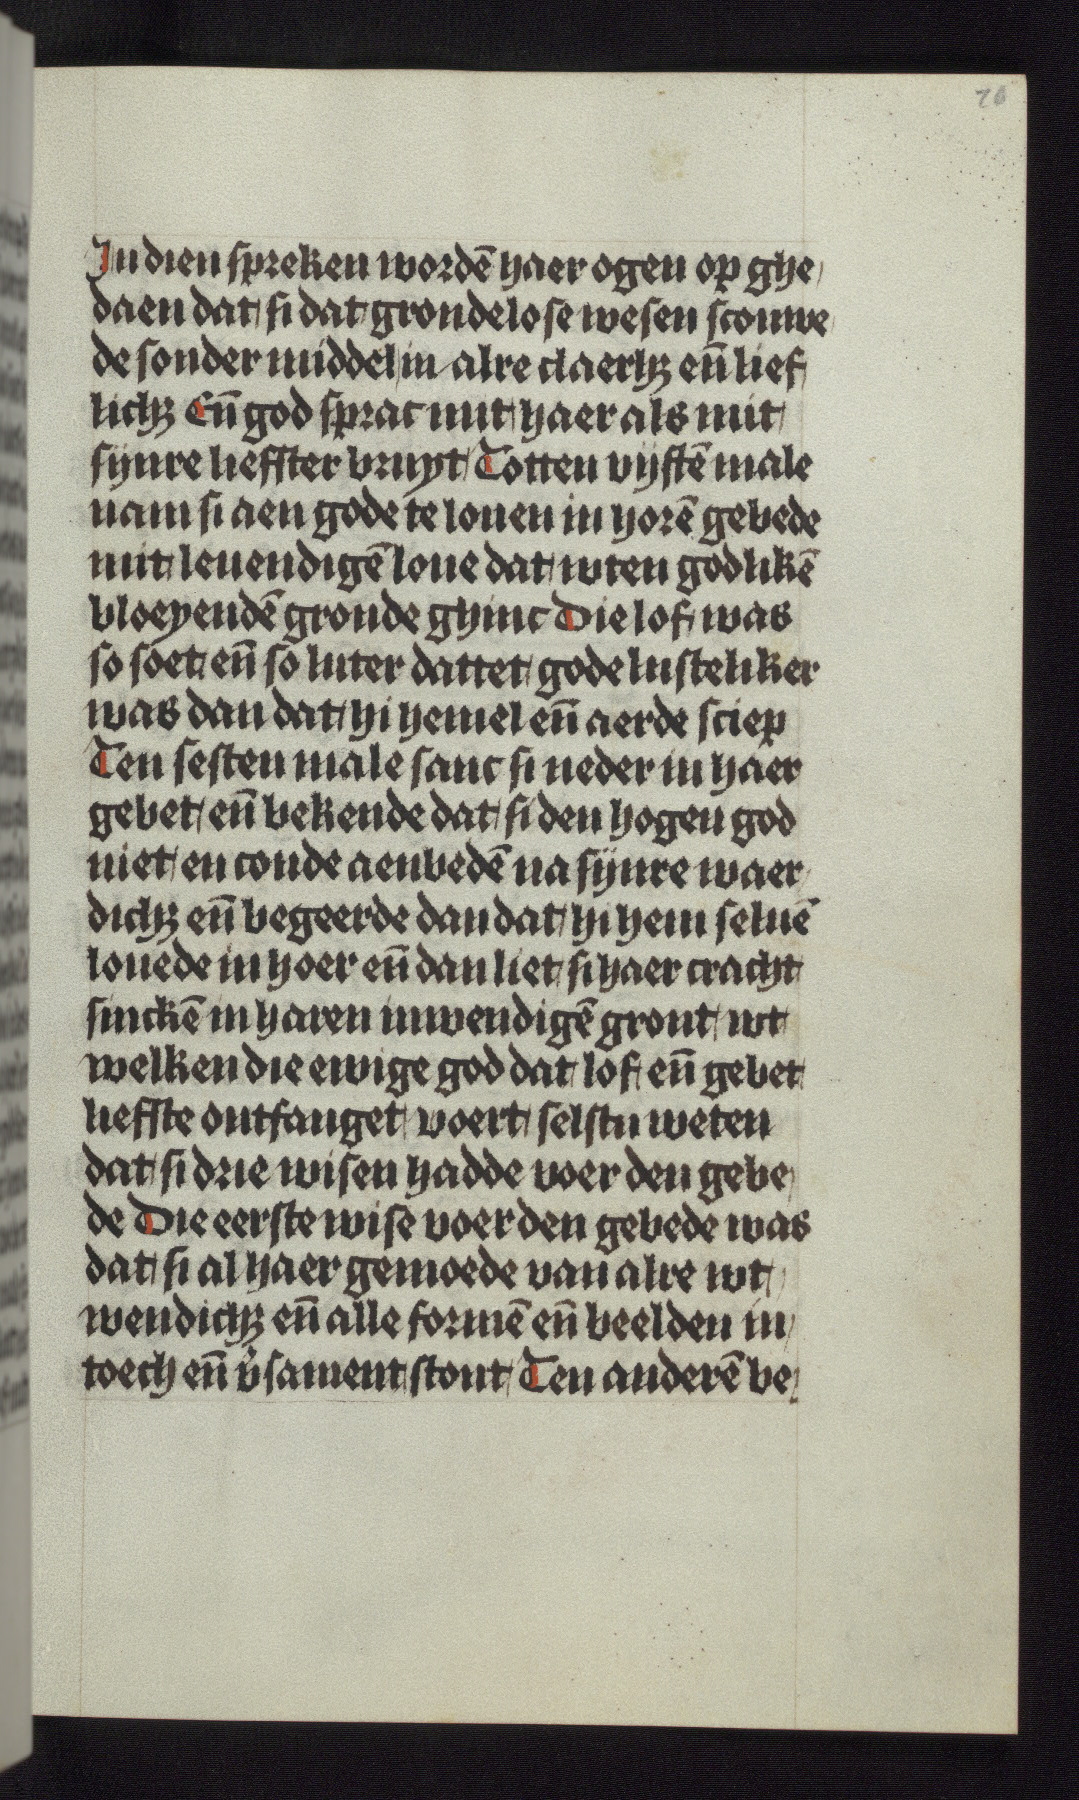 76
In dien spreken wordē haer ogen op ghe
daen dat si dat grondelose wesen scouwe
de sonder middel in alre claerhꝫ eñ lief
lichꝫ Eñ god sprac mit haer als mit
sijnre liefster bruyt Totten vijftē male
nam si aen gode te louen in horē gebede
mit leuendigē loue dat wten godlikē
bloeyendē gronde ghinc Die lof was
so soet eñ so luter dattet gode lusteliker
was dan dat hi hemel eñ aerde sciep
Ten sesten male sanc si neder in haer
gebet eñ bekende dat si den hogen god
niet en conde aenbedē na sijnre waer
dichꝫ eñ begeerde dan dat hi hem seluē
louede in hoer eñ dan liet si haer cracht
sinckē in haren inwendigē gront wt
welken die ewige god dat lof eñ gebet
liefste ontfanget voert selstu weten
dat si drie wisen hadde voer den gebe
de Die eerste wise voer den gebede was
dat si al haer gemoede van alre wt
wendichꝫ eñ alle formē eñ beelden in
toech eñ v̉sament stont Ten anderē be